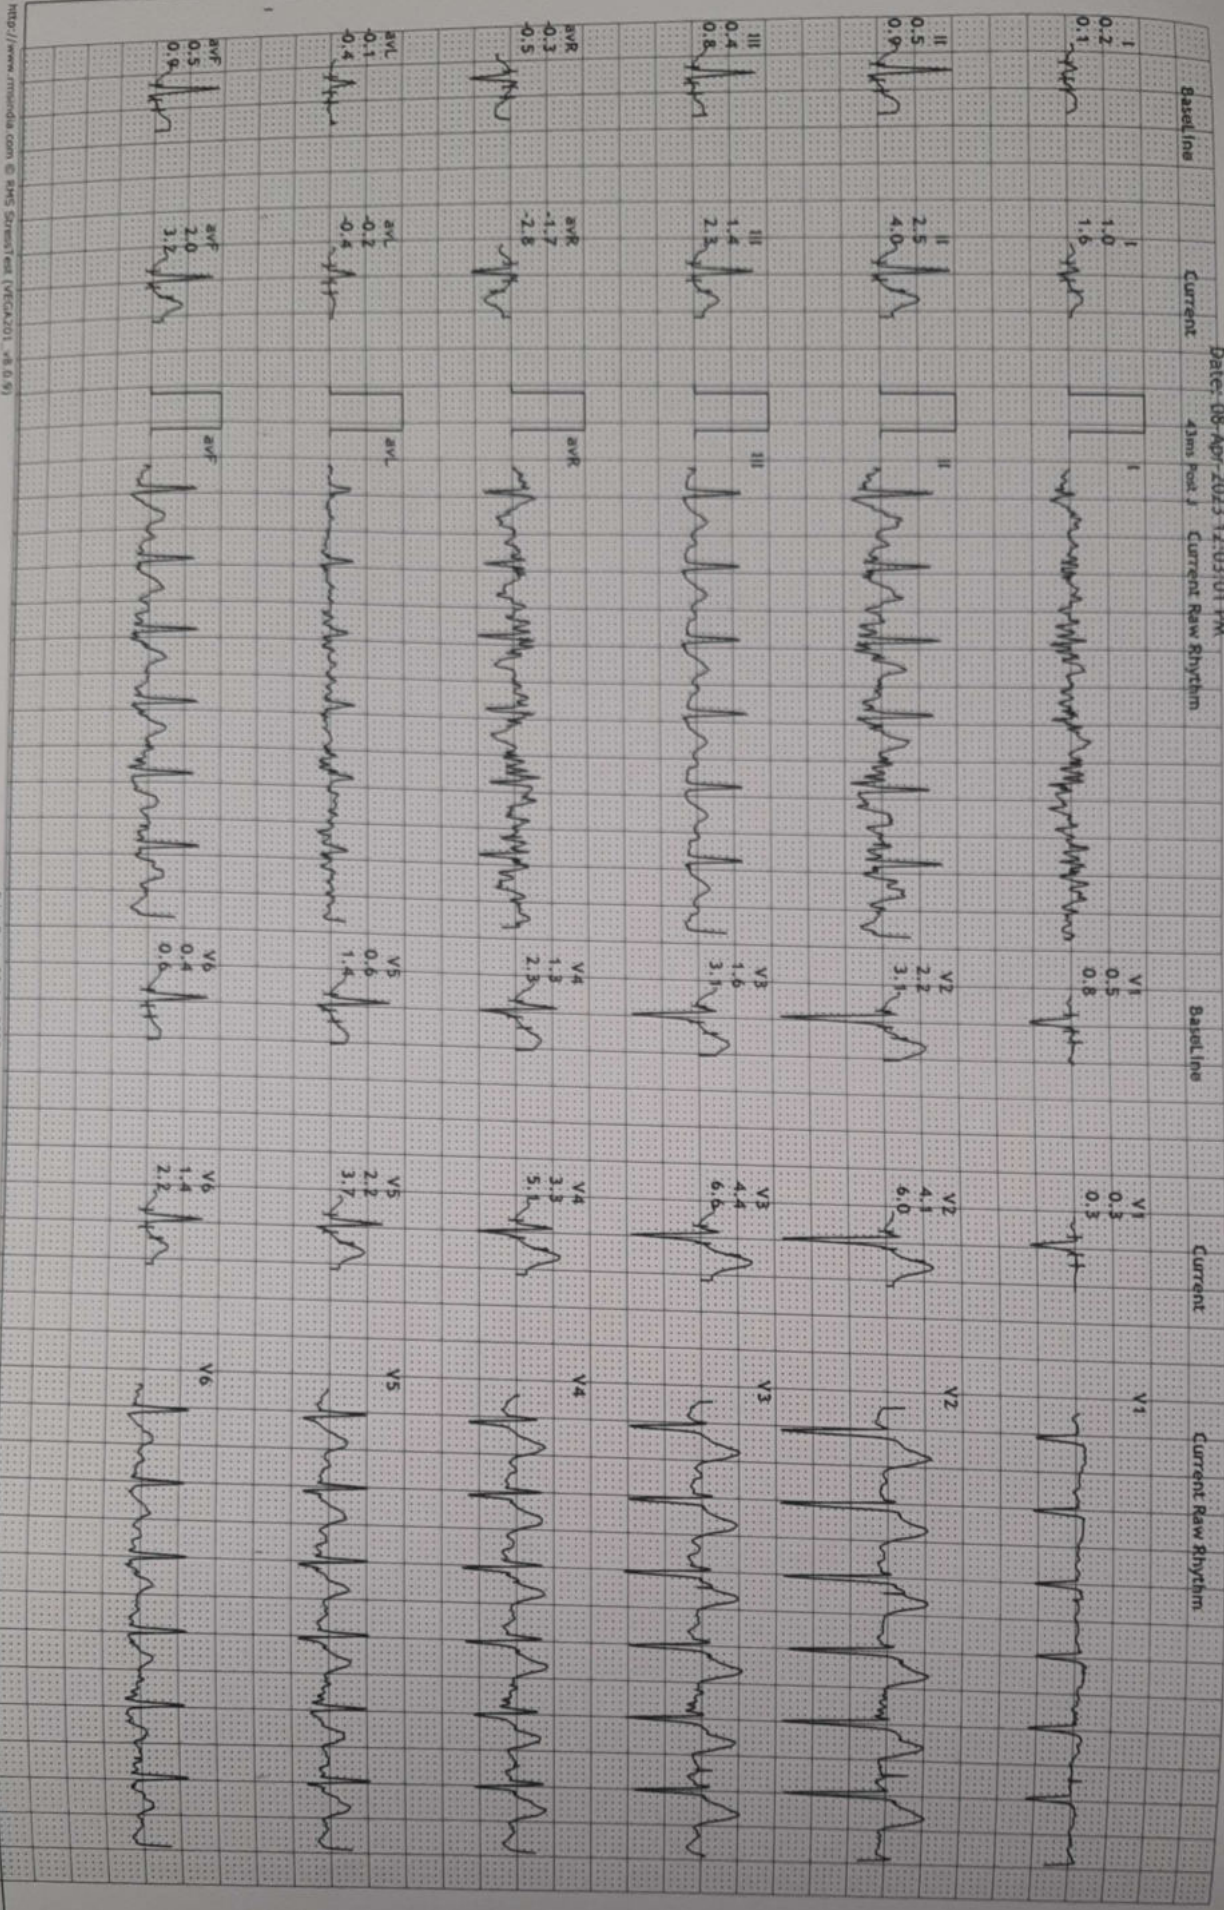 Date: 08-Apr-2023 12:03:01 PM
BaseLine
Current
43ms Post J
Current Raw Rhythm
BaseLine
Current
Current Raw Rhythm
I
0.2
0.1
I
1.0
1.6
I
V1
0.5
0.8
V1
0.3
0.3
V1
II
0.5
0.9
II
2.5
4.0
II
V2
2.2
3.1
V2
4.1
6.0
V2
III
0.4
0.8
III
1.4
2.3
III
V3
1.6
3.1
V3
4.4
6.6
V3
avR
-0.3
-0.5
avR
-1.7
-2.8
avR
V4
1.3
2.3
V4
3.3
5.1
V4
avL
-0.1
-0.4
avL
-0.2
-0.4
avL
V5
0.6
1.4
V5
2.2
3.7
V5
avF
0.5
0.9
avF
2.0
3.2
avF
V6
0.4
0.6
V6
1.4
2.2
V6
http://www.rmsindia.com © RMS StressTest (VEGA201 v8.0.9)